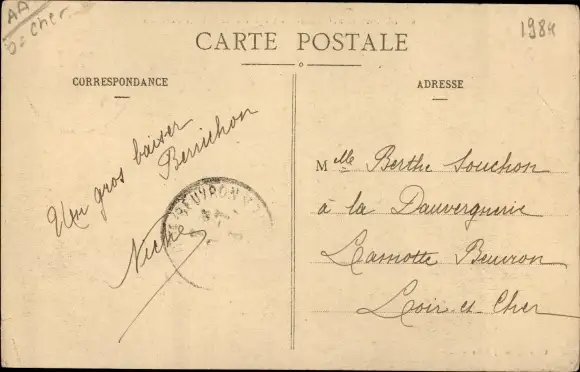 AA
1984
CARTE POSTALE
CORRESPONDANCE
Un gros baiser
Berrichon
ADRESSE
Mlle Berthe Souchon
à la Dauvergnerie
Lamotte Beuvron
Loir-et-Cher